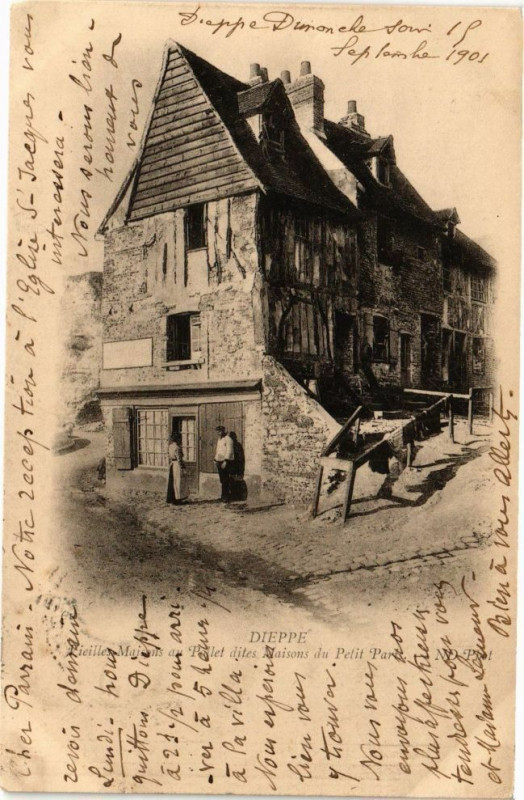 Dieppe Dimanche soir 15
Septembre 1901
Cher Parrain - Notre réception à l'Eglise St Jacques vous
intéressera -
Nous serons bien-
heureux de
vous
revoir demain
Lundi - nous
quittons Dieppe
à 2h 1/2 pour arri-
-ver à 5 heur 1/4
à la villa
Nous espérons
bien vous
y trouver.
Nous vous
envoyons nos
plus affectueux
tendresses pour vous
et Madame
Bien à vous
DIEPPE
Vieilles Maisons au Pollet dites Maisons du Petit Paris
ND Phot